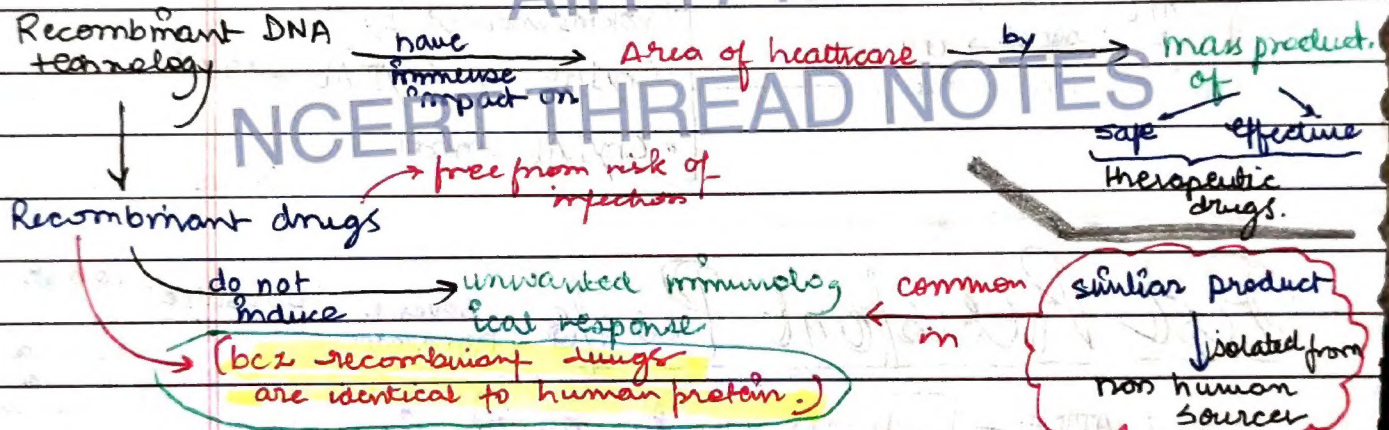 Recombinant DNA technology
have immense impact on
Area of healthcare
by
mass product. of
safe effective
therapeutic drugs.
NCERT THREAD NOTES
free from risk of infection
Recombinant drugs
do not induce
unwanted immunolog
ical response
common in
similiar product
isolated from
non human sources
(bcz recombinant drugs
are identical to human protein.)